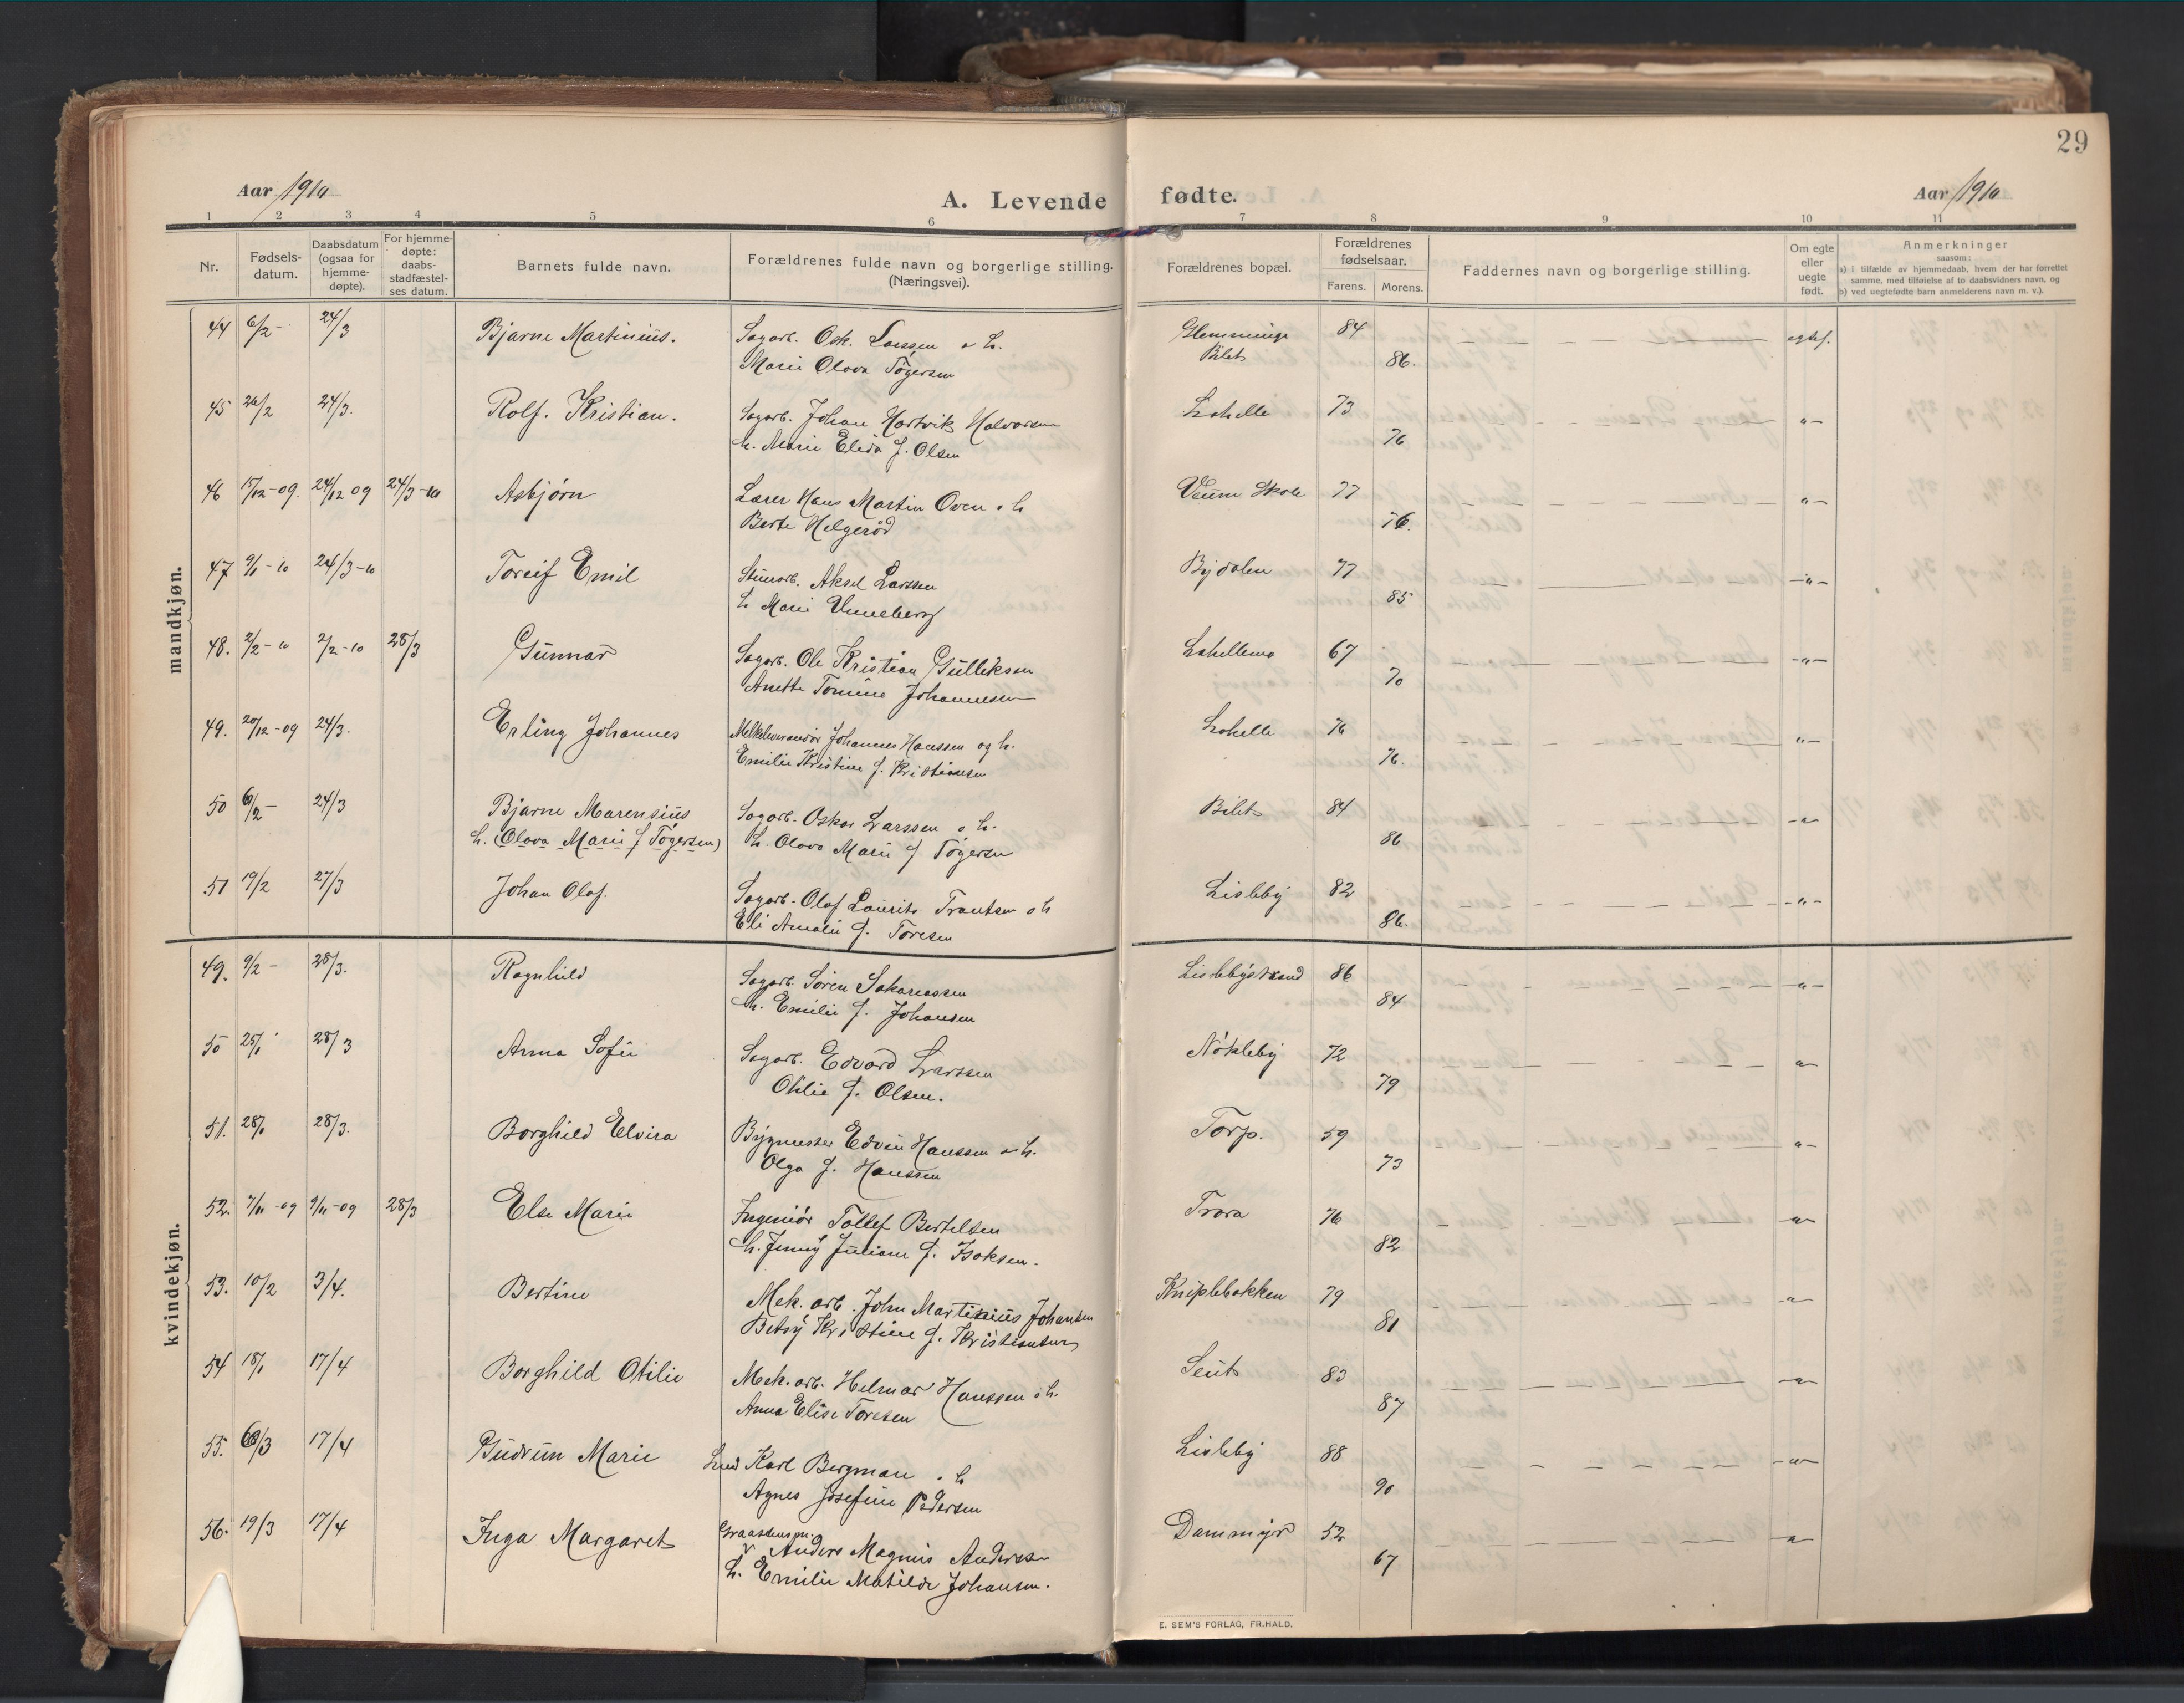 29
Aar 1910
A. Levende fødte.
Aar 1910
1 2 3 4 5 6 7 8 9 10 11
Nr.
Fødsels-
datum.
Daabsdatum
(ogsaa for
hjemme-
døpte).
For hjemme-
døpte:
daabs-
stadfæstel-
ses datum.
Barnets fulde navn.
Forældrenes fulde navn og borgerlige stilling.
(Næringsvei).
Forældrenes bopæl.
Forældrenes
fødselsaar.
Farens. Morens.
Faddernes navn og borgerlige stilling.
Om egte
eller
uegte
født.
Anmerkninger
saasom:
a) i tilfælde av hjemmedaab, hvem der har forrettet
samme, med tilføielse af to daabsvidners navn, og
b) ved uegtefødte barn anmelderens navn m. v.).
mandkjøn.
44 6/2 - 24/3 Bjarne Martinius. Sagarb. Osk. Larssen o h. Glemminge 84 egtef.
Marie Olava Tøgersen Bilet 86.
45 26/2 24/3. Rolf. Kristian. Sagarb. Johan Hartvik Halvorsen Lahelle 73 "-
h. Marie Elida f. Olsen 76
46 15/12-09. 24/12 09 24/3-10 Asbjørn Lærer Hans Martin Oven o h Veum Skole 77 "-
Berte Helgerød 76.
47 9/1-10 24/3-10 Toreif Emil Stenarb. Aksel Larssen Bydalen 77 -"-
h Marie Unneberg 85
48. 2/2-10 2/2-10 28/3 Gunnar Sagarb. Ole Kristian Gulliksen Lahellemo 67 -"-
Anette Tomine Johannesen 70
49. 20/12-09 24/3. Erling Johannes Melkeleverandør Johannes Hanssen og h. Lahelle 76 "-
Emilie Kristine f. Kristiansen 76.
50 6/2- 24/3 Bjarne Marensius Sagarb. Oskar Larssen o h. Bilet 84 -"-
h. (Olava Marie f Tøgersen) h. Olava Marie f Tøgersen 86
51 19/2 27/3 Johan Olaf. Sagarb. Olaf Lauritz Trantsen o h Lisleby 82 -"-
Eli Amalie f. Toresen 86.
kvindekjøn.
49. 9/2 - 28/3. Ragnhild Sagarb. Søren Sakariassen Lislebystrand 86 -"-
h. Emilie f. Johansen 84
50 25/1 28/3 Anna Sofie Sagarb. Edvard Larssen Nøkleby 72 "-
Otilie f. Olsen. 79
51. 28/1 28/3. Borghild Elvira Bygmester Edvin Hanssen o h. Torp. 59 "-
Olga f. Hanssen 73
52. 7/11-09 9/11-09 28/3 Else Marie Ingeniør Tollef Bertelsen Trara 76 -"-
h. Jenny Juliane f. Isaksen. 82
53. 10/2 3/4. Bertine Mek. arb. John Martinius Johansen Kniplebakken 79 -"-
Betsy Kristine f. Kristiansen 81
54 18/1 17/4 Borghild Otilie Mek. arb. Helmar Hanssen o h. Seut 83 -"-
Anna Elise Toresen 87
55. 17/4 Gudrun Marie Karl Bergman o h Lisleby 88 -"-
Agnes Josefine Pedersen 90
56. 19/3 17/4 Inga Margaret Anders Magnus Anderssen Dammyr 52 -"-
h. Emilie Matilde Johansen. 67
E. SEM'S FORLAG, FR.HALD.